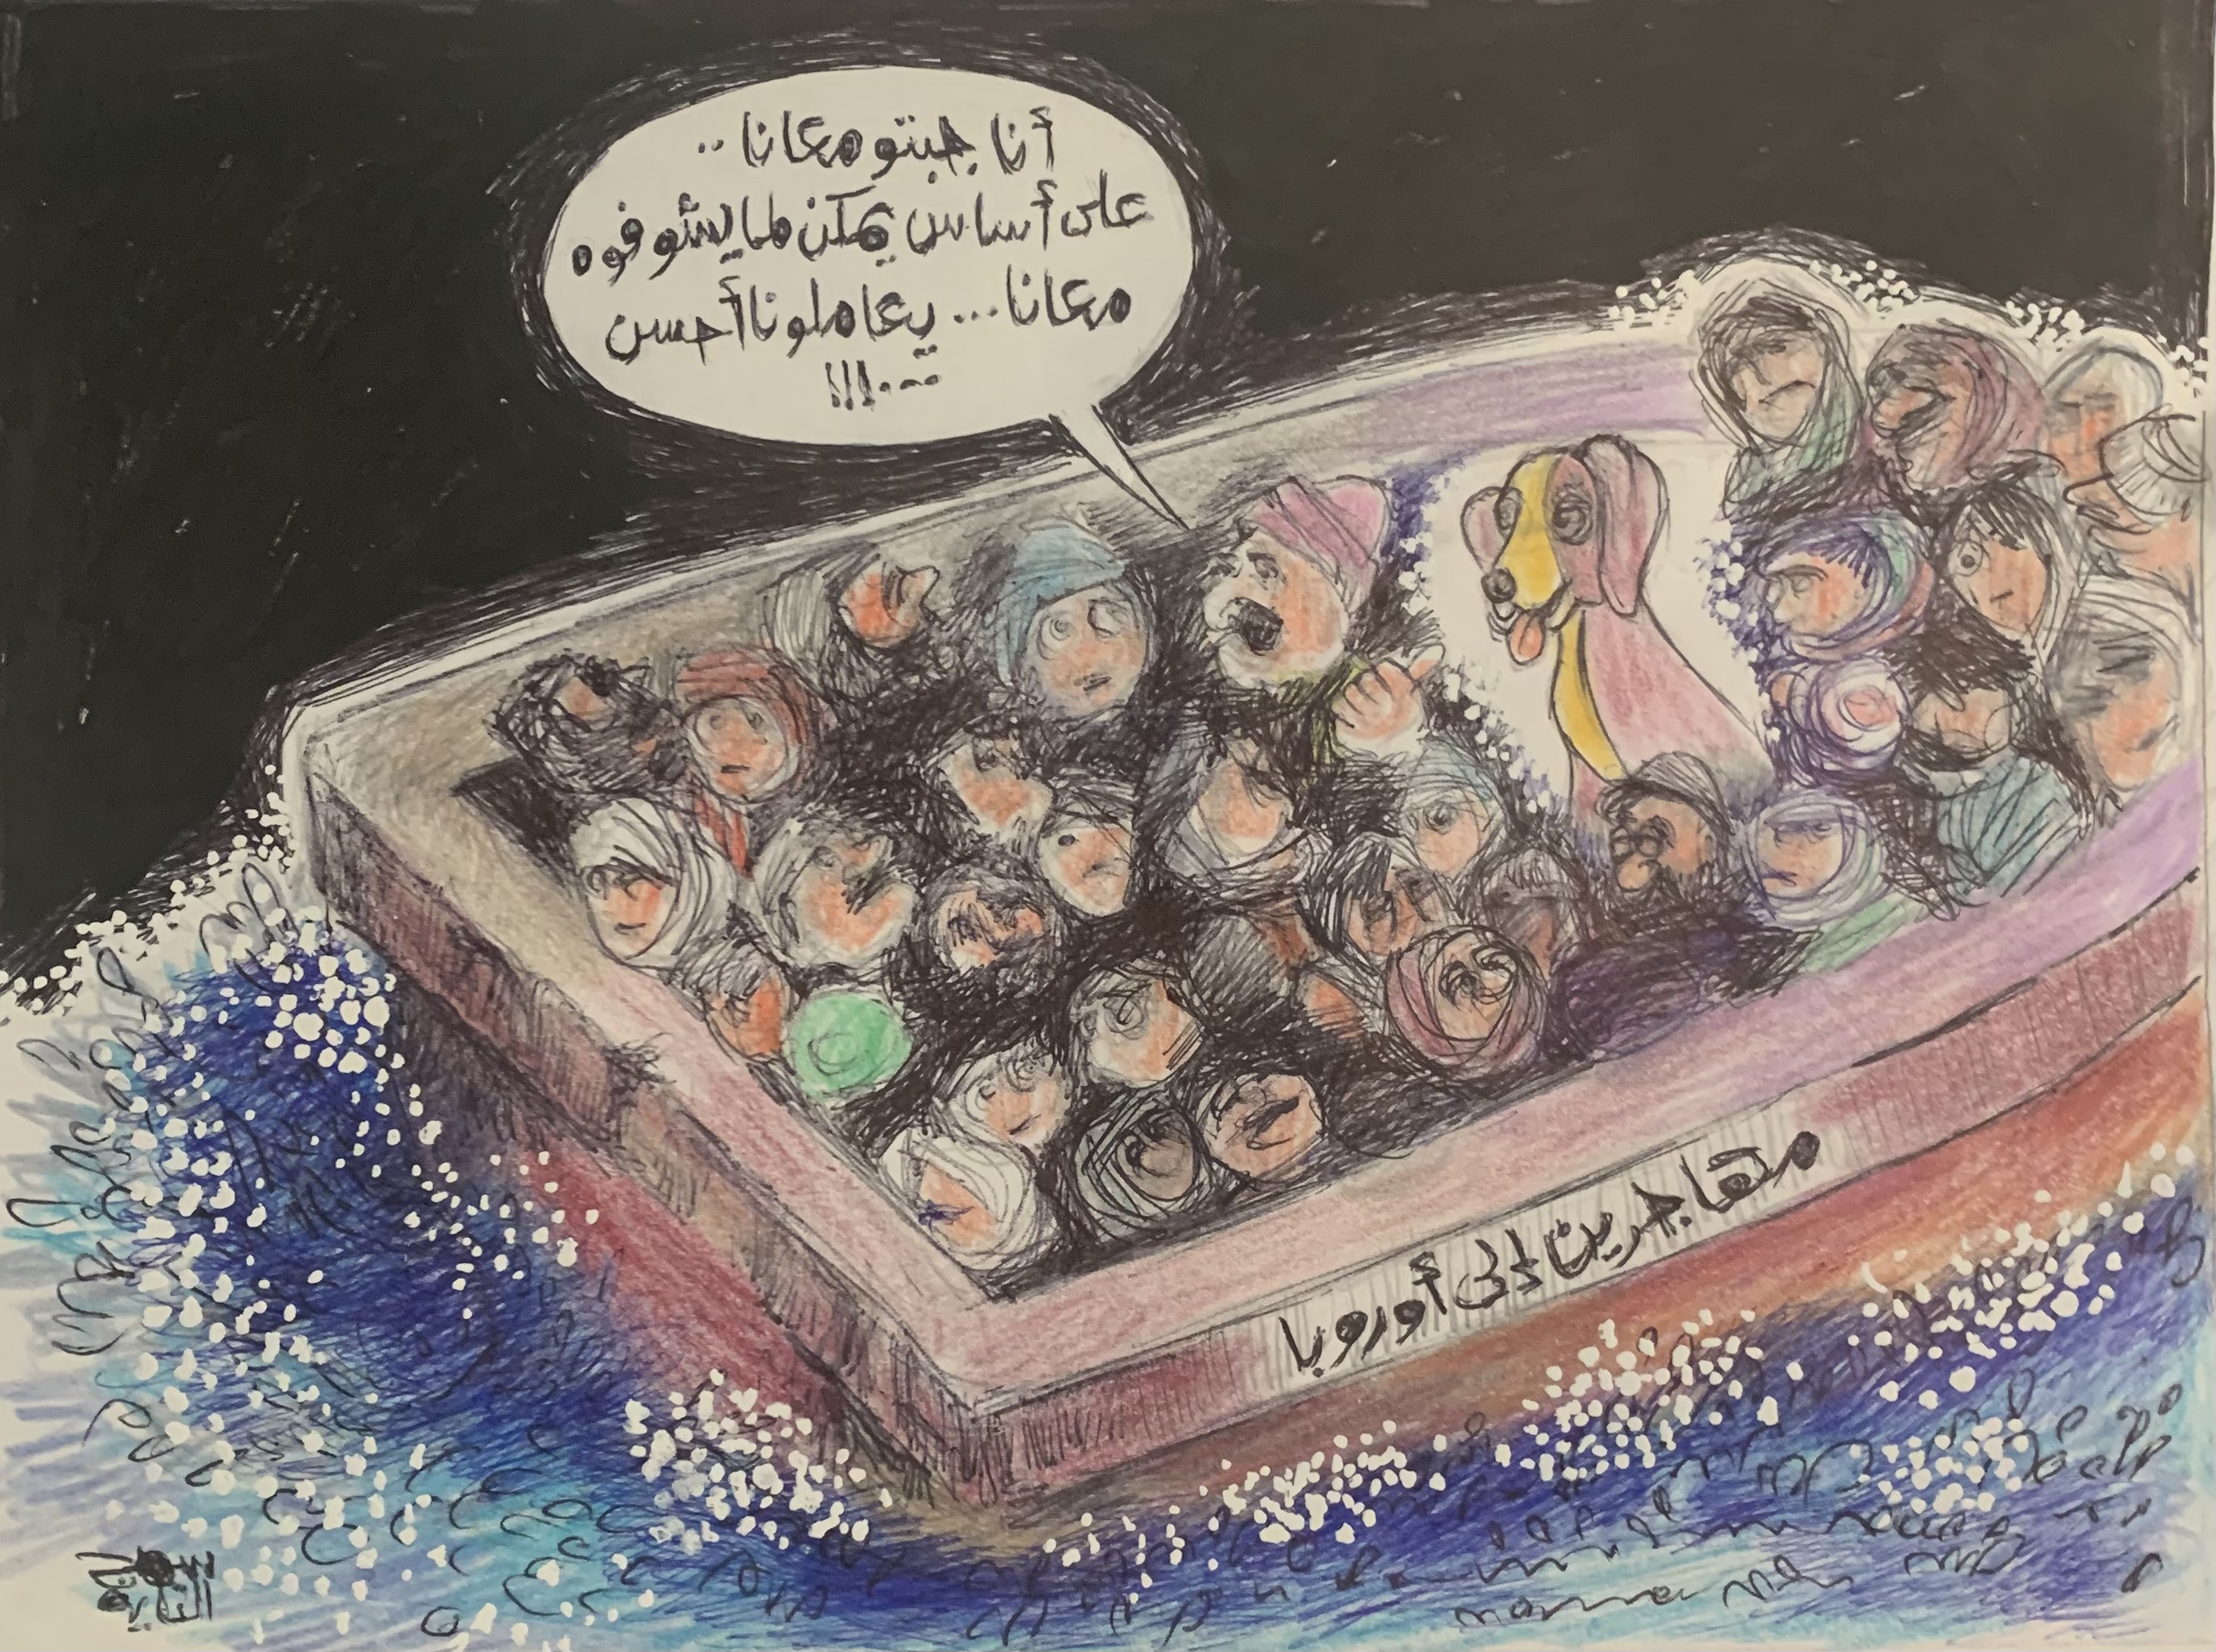 أنا جبتو معانا ..
على أساس يمكن لما يشوفوه
معانا ... يعاملونا أحسن
...!!!
مهاجرين إلى أوروبا